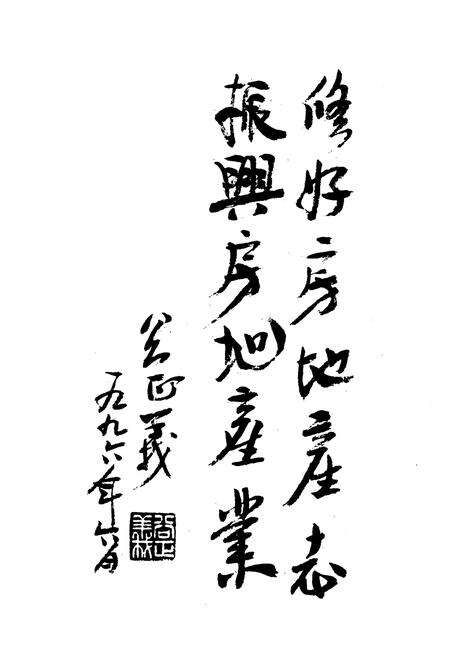 修好房地產志
振興房地產業
正義
一九九六年六月